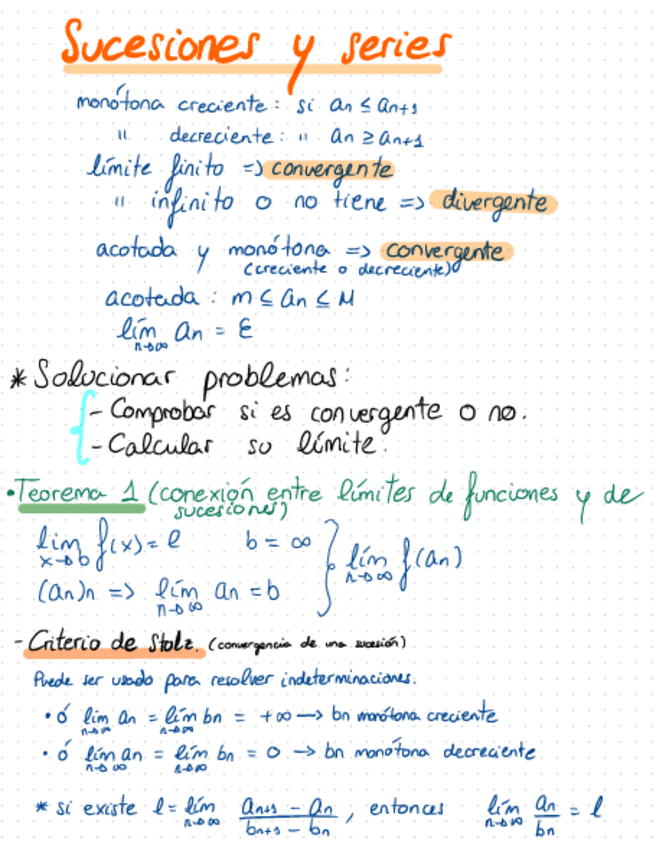 Sucesiones y series
monótona creciente: si an ≤ an+1
" decreciente: " an ≥ an+1
límite finito => convergente
" infinito o no tiene => divergente
acotada y monótona => convergente
(creciente o decreciente)
acotada: m ≤ an ≤ M
lím an = ε
n→∞
* Solucionar problemas:
- Comprobar si es convergente o no.
- Calcular su límite.
• Teorema 1 (conexión entre límites de funciones y de
sucesiones)
lim f(x) = l b = ∞
x→b
lím f(an)
n→∞
(an)n => lím an = b
n→∞
- Criterio de Stolz. (convergencia de una sucesión)
Puede ser usado para resolver indeterminaciones.
• ó lím an = lím bn = +∞ → bn monótona creciente
n→∞ n→∞
• ó lím an = lím bn = 0 → bn monótona decreciente
n→∞ n→∞
* si existe l = lím (an+1 - an) / (bn+1 - bn), entonces lím an/bn = l
n→∞ n→∞